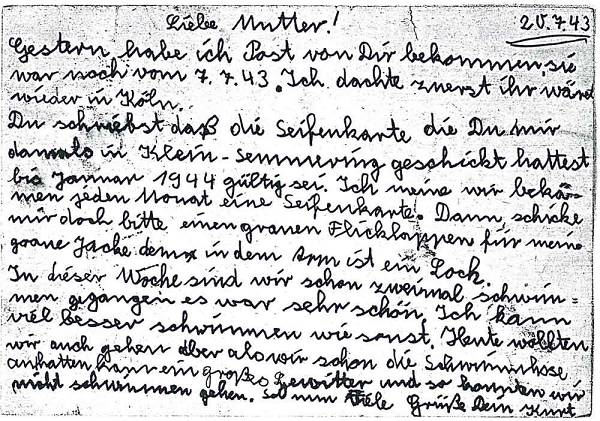 Liebe Mutter! 20.7.43
Gestern habe ich Post von Dir bekommen, sie
war noch vom 7.7.43. Ich dachte zuerst ihr wäret
wieder in Köln.
Du schriebst daß die Seifenkarte die Du mir
damals in Klein-Semmering geschickt hattest
bis Januar 1944 gültig sei. Ich meine wir bekä-
men jeden Monat eine Seifenkarte. Dann schicke
mir doch bitte einen grauen Flicklappen für meine
graue Jacke denn in dem Arm ist ein Loch.
In dieser Woche sind wir schon zweimal schwim=
men gegangen es war sehr schön. Ich kann
viel besser schwimmen wie sonst. Heute wollten
wir auch gehen aber als wir schon die Schwimmhose
anhatten kam ein großes Gewitter und so konnten wir
nicht schwimmen gehen. So nun viele Grüße Dein Kurt